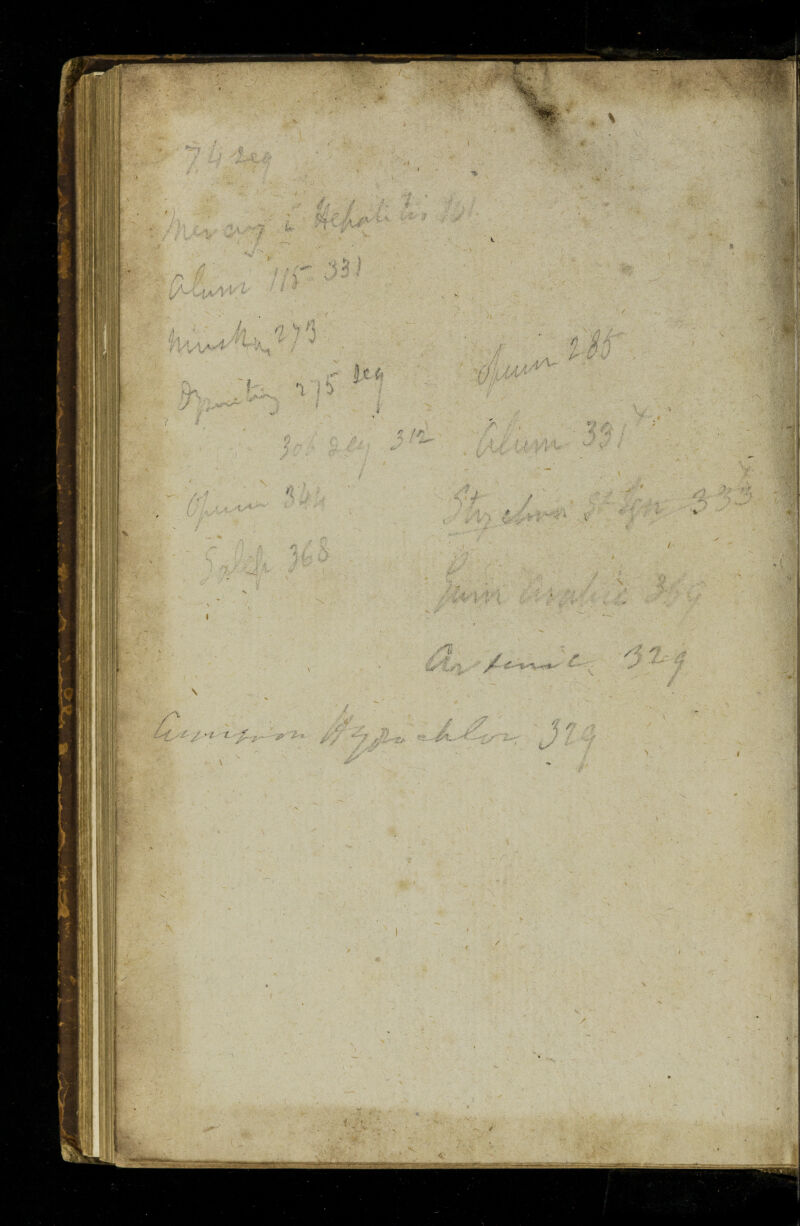 74 seq
Mercury in Hepatitis 101
Alum 115 - 331
Musk 273
Dysentery 275 seq
Opium 285
306 seq 312
Alum 331
Opium 344
Strychnos St Ign 333
Salep 368
Gum Arabic 369
Arsenic 329
Ammon Hydrochlor 329